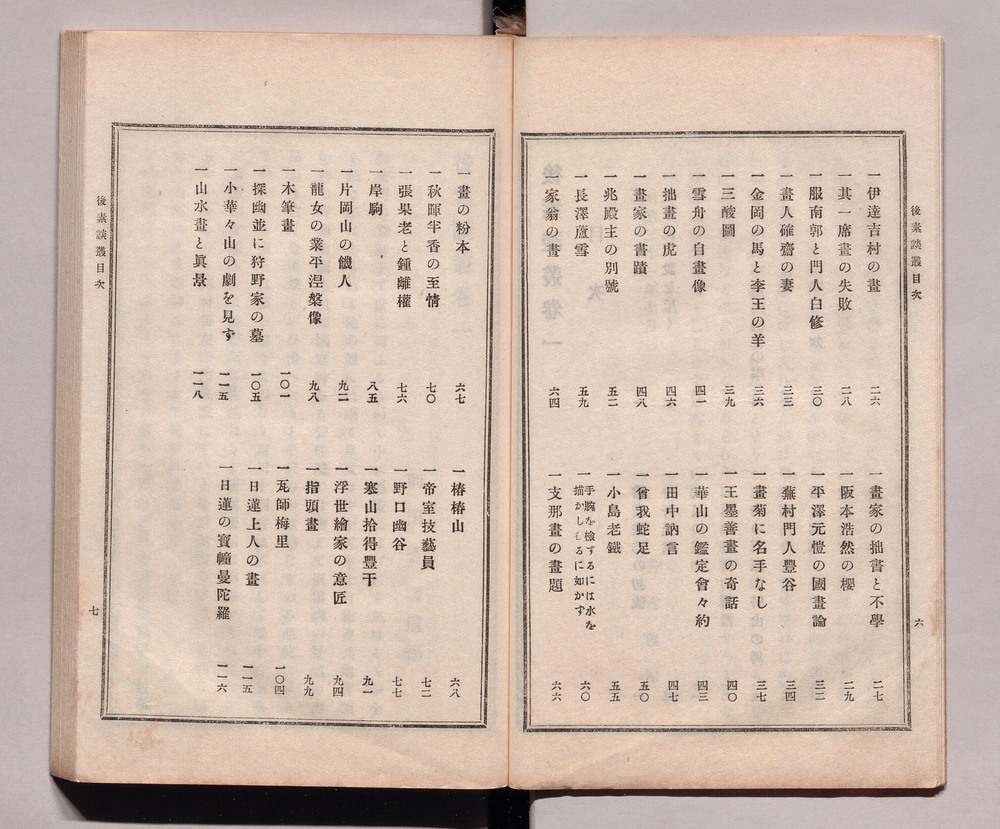 後素談叢目次
六
一伊達吉村の畫 二六
一其一席畫の失敗 二八
一服南郭と門人白修 三〇
一畫人確齋の妻 三三
一金岡の馬と李王の羊 三六
一三酸圖 三九
一雪舟の自畫像 四一
一拙畫の虎 四六
一畫家の書蹟 四八
一兆殿主の別號 五二
一長澤蘆雪 五九
一家翁の畫 六四
一畫家の拙書と不學 二七
一阪本浩然の櫻 二九
一平澤元愷の國畫論 三二
一蕪村門人豐谷 三四
一畫菊に名手なし 三七
一王墨善畫の奇話 四〇
一華山の鑑定會々約 四三
一田中訥言 四七
一曾我蛇足 五〇
一小島老鐵 五五
一手腕を檢するには水を
描かしむるに如かず 六〇
一支那畫の畫題 六六
一畫の粉本 六七
一秋暉半香の至情 七〇
一張果老と鍾離權 七六
一岸駒 八五
一片岡山の饑人 九二
一龍女の業平涅槃像 九八
一木筆畫 一〇一
一探幽並に狩野家の墓 一〇五
一小華々山の劇を見ず 一一五
一山水畫と眞景 一一八
一椿椿山 六八
一帝室技藝員 七二
一野口幽谷 七七
一寒山拾得豐干 九一
一浮世繪家の意匠 九四
一指頭畫 九九
一瓦師梅里 一〇四
一日蓮上人の畫 一一五
一日蓮の寶幢曼陀羅 一一六
後素談叢目次
七